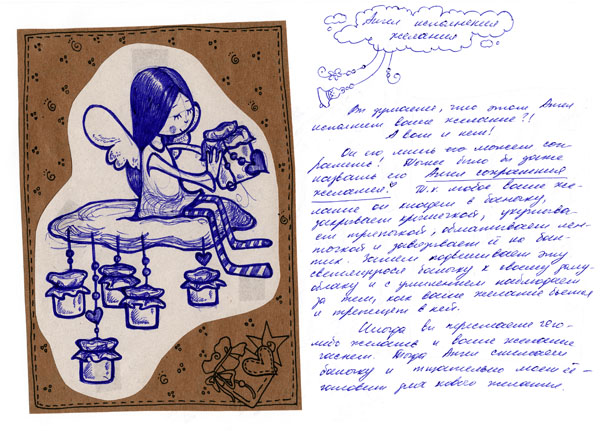 Ангел исполнения
желания
Вы думаете, что этот Ангел
исполнит ваше желание?!
А вот и нет!
Он его лишь его может сох-
ранить! Точнее было бы даже
назвать его Ангел сохранения
желаний. Т.к. любое ваше же-
лание он кладет в баночку,
закрывает крышечкой, укутыва-
ет тряпочкой, обматывает лен-
точкой и завязывает её на бан-
тик. Затем подвешивает эту
светящуюся баночку к своему
облаку и с умилением наблюдает
за тем, как ваше желание бьется
и трепещет в ней.
Иногда вы перестаете чего-
либо желать и ваше желание
гаснет. Тогда Ангел снимает
баночку и тщательно моет её -
готовит для нового желания.